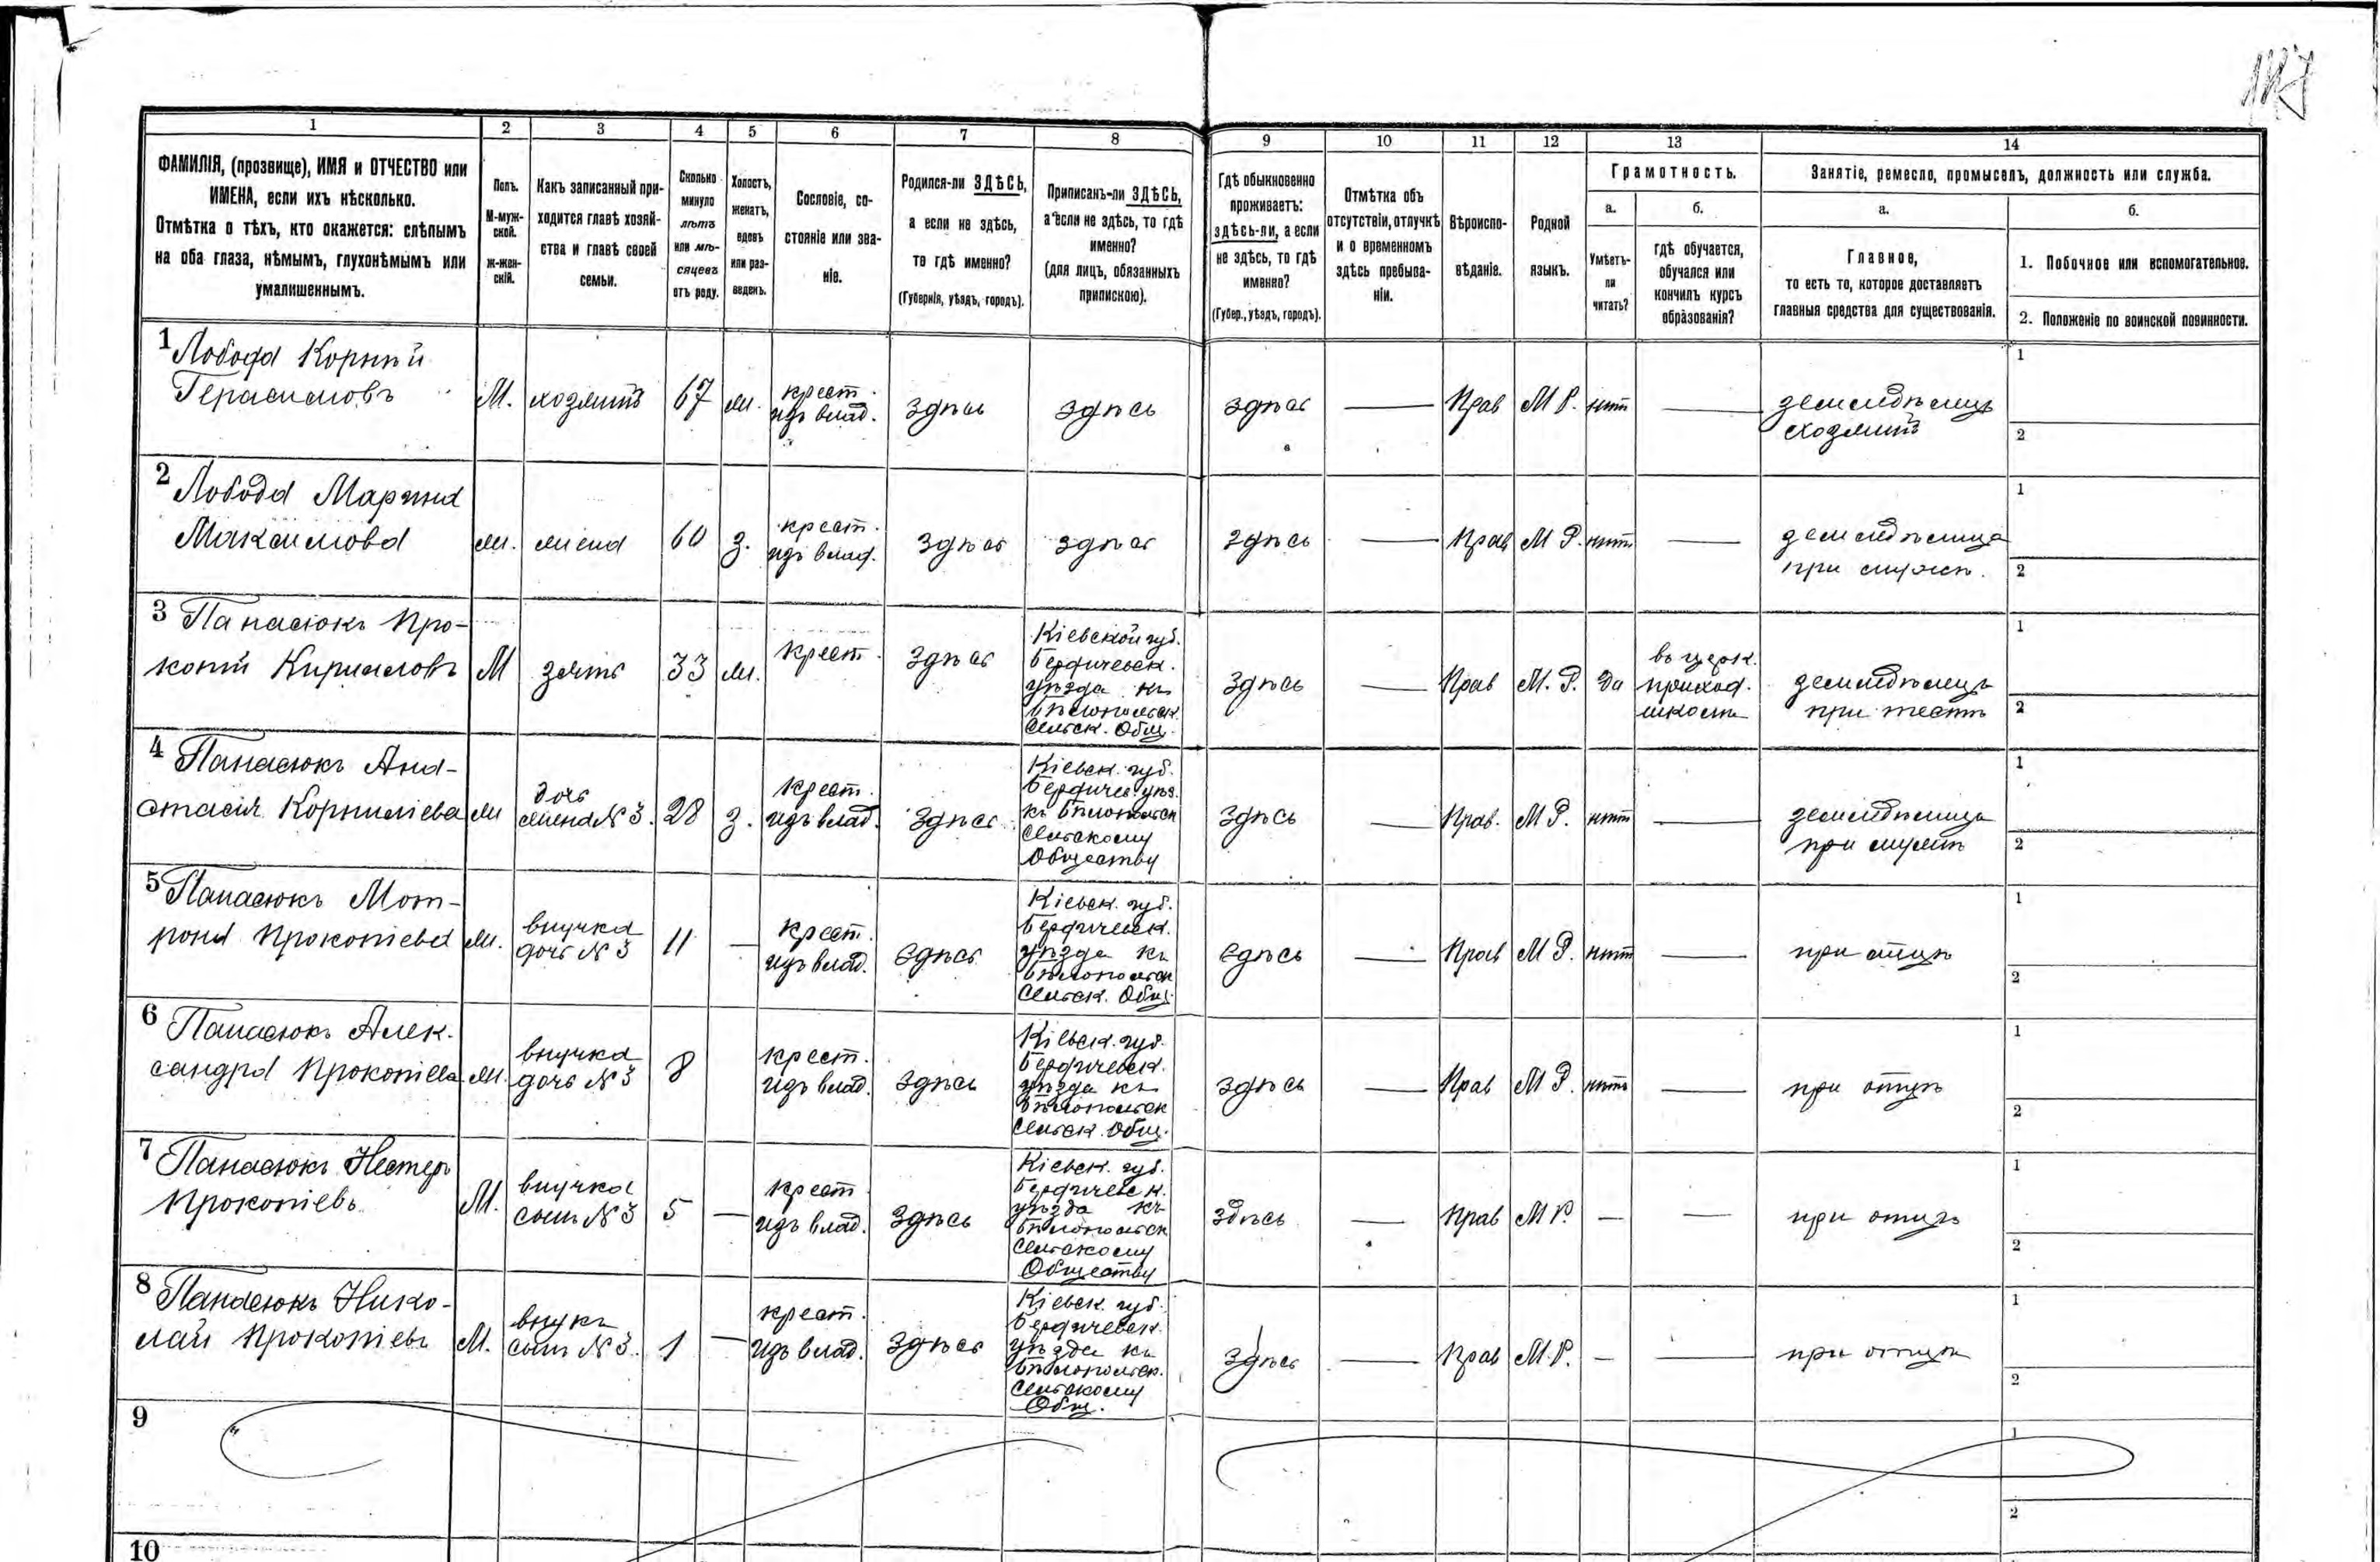 117
1 2 3 4 5 6 7 8 9 10 11 12 13 14
ФАМИЛІЯ, (прозвище), ИМЯ и ОТЧЕСТВО или
ИМЕНА, если ихъ нѣсколько.
Отмѣтка о тѣхъ, кто окажется: слѣпымъ
на оба глаза, нѣмымъ, глухонѣмымъ или
умалишеннымъ.
Полъ.
М-муж-
ской.
Ж-жен-
скій.
Какъ записанный при-
ходится главѣ хозяй-
ства и главѣ своей
семьи.
Сколько
минуло
лѣтъ
или мѣ-
сяцевъ
отъ роду.
Холостъ,
женатъ,
вдовъ
или раз-
веденъ.
Сословіе, со-
стояніе или зва-
ніе.
Родился-ли ЗДѢСЬ,
а если не здѣсь,
то гдѣ именно?
(Губернія, уѣздъ, городъ).
Приписанъ-ли ЗДѢСЬ,
а если не здѣсь, то гдѣ
именно?
(для лицъ, обязанныхъ
припискою).
Гдѣ обыкновенно
проживаетъ:
здѣсь-ли, а если
не здѣсь, то гдѣ
именно?
(Губер., уѣздъ, городъ).
Отмѣтка объ
отсутствіи, отлучкѣ
и о временномъ
здѣсь пребыва-
ніи.
Вѣроиспо-
вѣданіе.
Родной
языкъ.
Грамотность.
а.
Умѣетъ-
ли
читать?
б.
гдѣ обучается,
обучался или
кончилъ курсъ
образованія?
Занятіе, ремесло, промыселъ, должность или служба.
а.
Главное,
то есть то, которое доставляетъ
главныя средства для существованія.
б.
1. Побочное или вспомогательное.
2. Положеніе по воинской повинности.
1 Лобода Корнѣй
Герасимовъ
М.
хозяинъ
67
ж.
крест.
изъ влад.
здѣсь
здѣсь
здѣсь
—
Прав
М Р.
нѣтъ
—
земледѣлецъ
хозяинъ
1
2
2 Лобода Марина
Максимова
ж.
жена
60
з.
крест.
изъ влад.
здѣсь
здѣсь
здѣсь
—
Прав
М Р.
нѣтъ
—
земледѣлица
при мужѣ.
1
2
3 Панасюкъ Про-
копій Кириловъ
М
зять
33
ж.
крест.
здѣсь
Кіевской губ.
Бердичевск.
уѣзда къ
Бѣлопольск.
Сельск. Общ.
здѣсь
—
Прав
М. Р.
да
въ церк.
приход.
школѣ
земледѣлецъ
при тестѣ
1
2
4 Панасюкъ Ана-
стасія Корниліева
ж
дочь
жена № 3.
28
з.
крест.
изъ влад.
здѣсь
Кіевск. губ.
Бердичев. уѣз.
къ Бѣлопольск
Сельскому
Обществу
здѣсь
—
Прав.
М Р.
нѣтъ
—
земледѣлица
при мужѣ
1
2
5 Панасюкъ Мот-
рона Прокопіева
ж.
внучка
дочь № 3
11
—
крест.
изъ влад.
здѣсь
Кіевск. губ.
Бердичевск.
уѣзда къ
Бѣлопольск
Сельск. Общ.
здѣсь
—
Прав
М Р.
нѣтъ
—
при отцѣ
1
2
6 Панасюкъ Алек-
сандра Прокопіева
ж.
внучка
дочь № 3
8
крест.
изъ влад.
здѣсь
Кіевск. губ.
Бердичевск.
уѣзда къ
Бѣлопольск
Сельск. Общ.
здѣсь
—
Прав
М Р.
нѣтъ
—
при отцѣ
1
2
7 Панасюкъ Нестеръ
Прокопіевъ
М.
внучка
сынъ № 3
5
—
крест
изъ влад.
здѣсь
Кіевск. губ.
Бердичевск.
уѣзда къ
Бѣлопольск
Сельскому
Обществу
здѣсь
—
Прав
М Р.
—
—
при отцѣ
1
2
8 Панасюкъ Нико-
лай Прокопіевъ
М.
внукъ
сынъ № 3.
1
—
крест.
изъ влад.
здѣсь
Кіевск. губ.
Бердичевск.
уѣзда къ
Бѣлопольск.
Сельскому
Общ.
здѣсь
—
Прав
М. Р.
—
—
при отцѣ
1
2
9
1
2
10